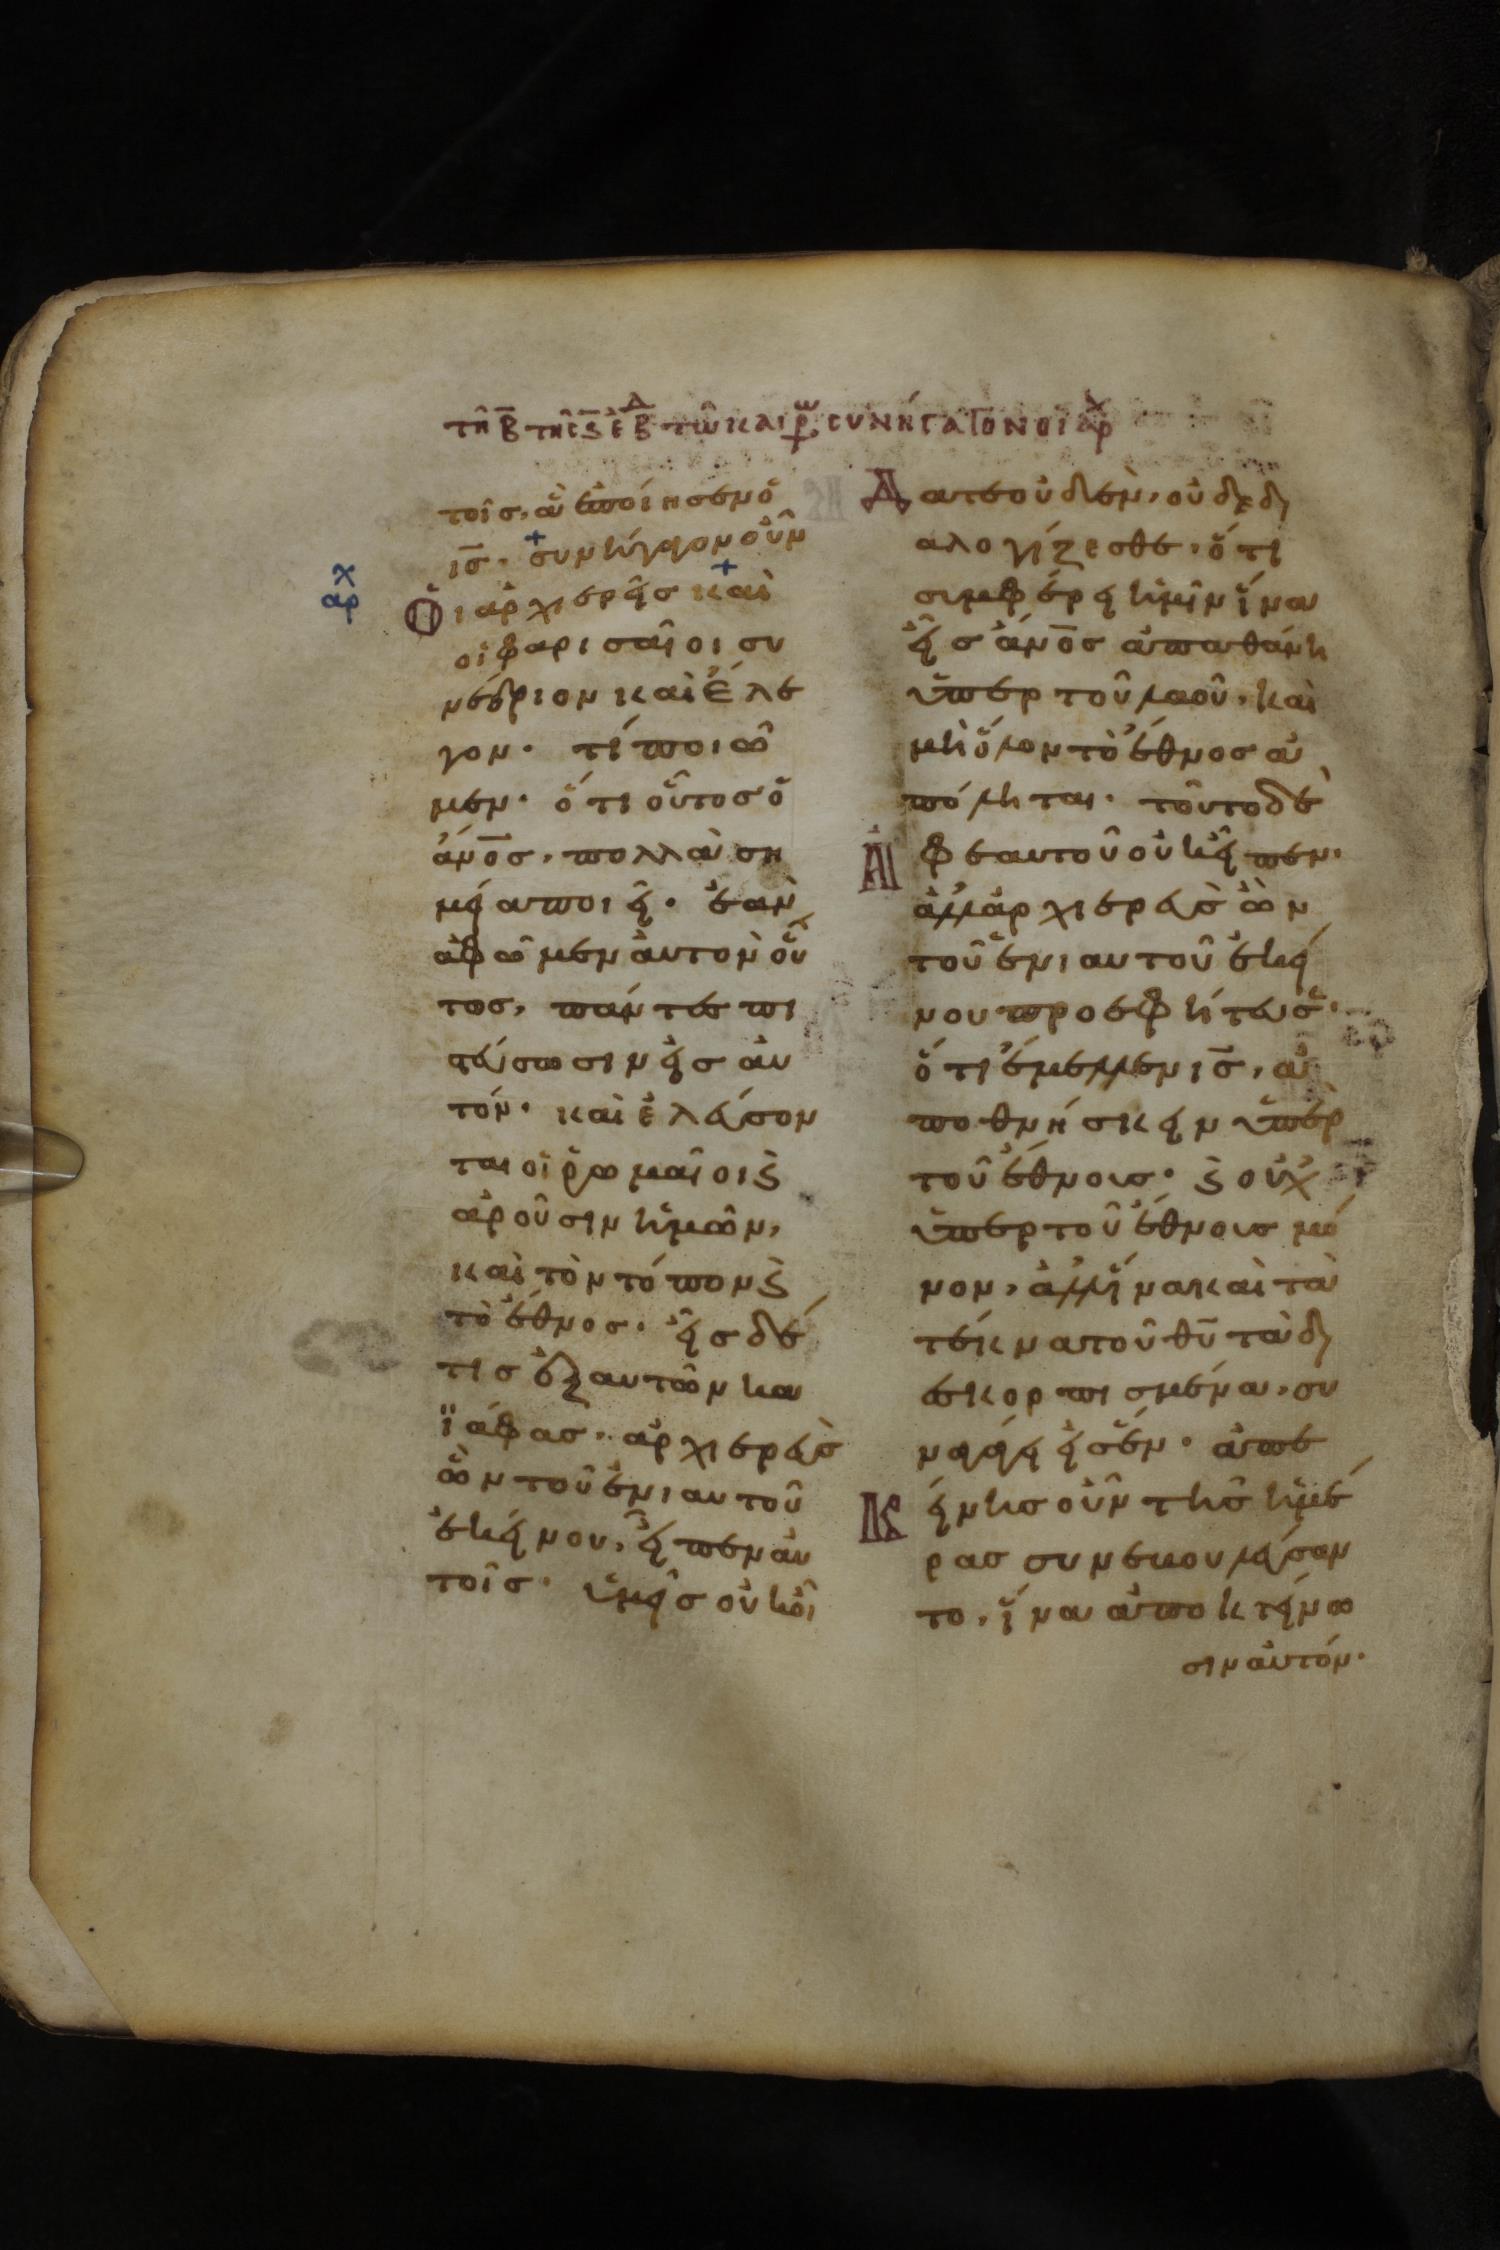 τῆ β̅ τῆς ς̅ ἑβ̅δ τῶ καιρῶ συνήγαγον οἱ ἀρχ
τοῖς, ἃ ἐποίησεν ὁ
ις̅. συνήγαγον οὖν
αρχ
Οἱ ἀρχιερεῖς καὶ
οἱ φαρισαῖοι συ
νέδριον καὶ ἔλε
γον. τί ποιοῦ
μεν. ὅτι οὗτος ὁ
ἄνο̅ς, πολλὰ ση
μεῖα ποιεῖ. ἐὰν
ἀφῶμεν ἀυτὸν οὕ
τως, πάντες πι
στεύσωσιν εἰς αὐ
τόν. καὶ ἐλεύσον
ται οἱ ῥωμαῖοι ϗ
ἀροῦσιν ἡμῶν,
καὶ τὸν τόπον ϗ
τὸ ἔθνος. εἷς δέ
τις ἐξ αυτῶν κα
ϊάφας. ἀρχιερεὺς
ὢν τοῦ ἐνιαυτοῦ
ἐκείνου, εἶπεν ἀυ
τοῖς. ὑμεῖς οὐκ οἴ
Δατε οὐδὲν, οὐδὲ δι
αλογίζεσθε, ὅτι
συμφέρει ἡμῖν ἵνα
εἷς ἄνο̅ς ἀποθάνη
ὑπερ τοῦ λαοῦ, καὶ
μὴ ὅλον τὸ ἔθνος ἀ
πόληται. τοῦτο δὲ
Ἀφ εαυτοῦ οὐκ εἶπεν.
ἀλλ ἀρχιερεὺς ὢν
τοῦ ἐνιαυτοῦ ἐκεί
νου προεφήτευσεν.
ὅτι ἔμελλεν ις̅, ἀ
ποθνήσκειν ὑπὲρ
τοῦ ἔθνους. ϗ οὐχ
ὑπερ τοῦ ἔθνους μό
νον, ἀλλ ἵνα καὶ τὰ
τέκνα τοῦ θυ̅ τὰ δι
εσκορπισμένα, συ
ναγάγει εἰς ἕν. ἀπε
Κείνης οὖν τῆς ἡμέ
ρας συνεβουλεύσαν
το, ἵνα ἀποκτείνω
σιν ἀυτόν.